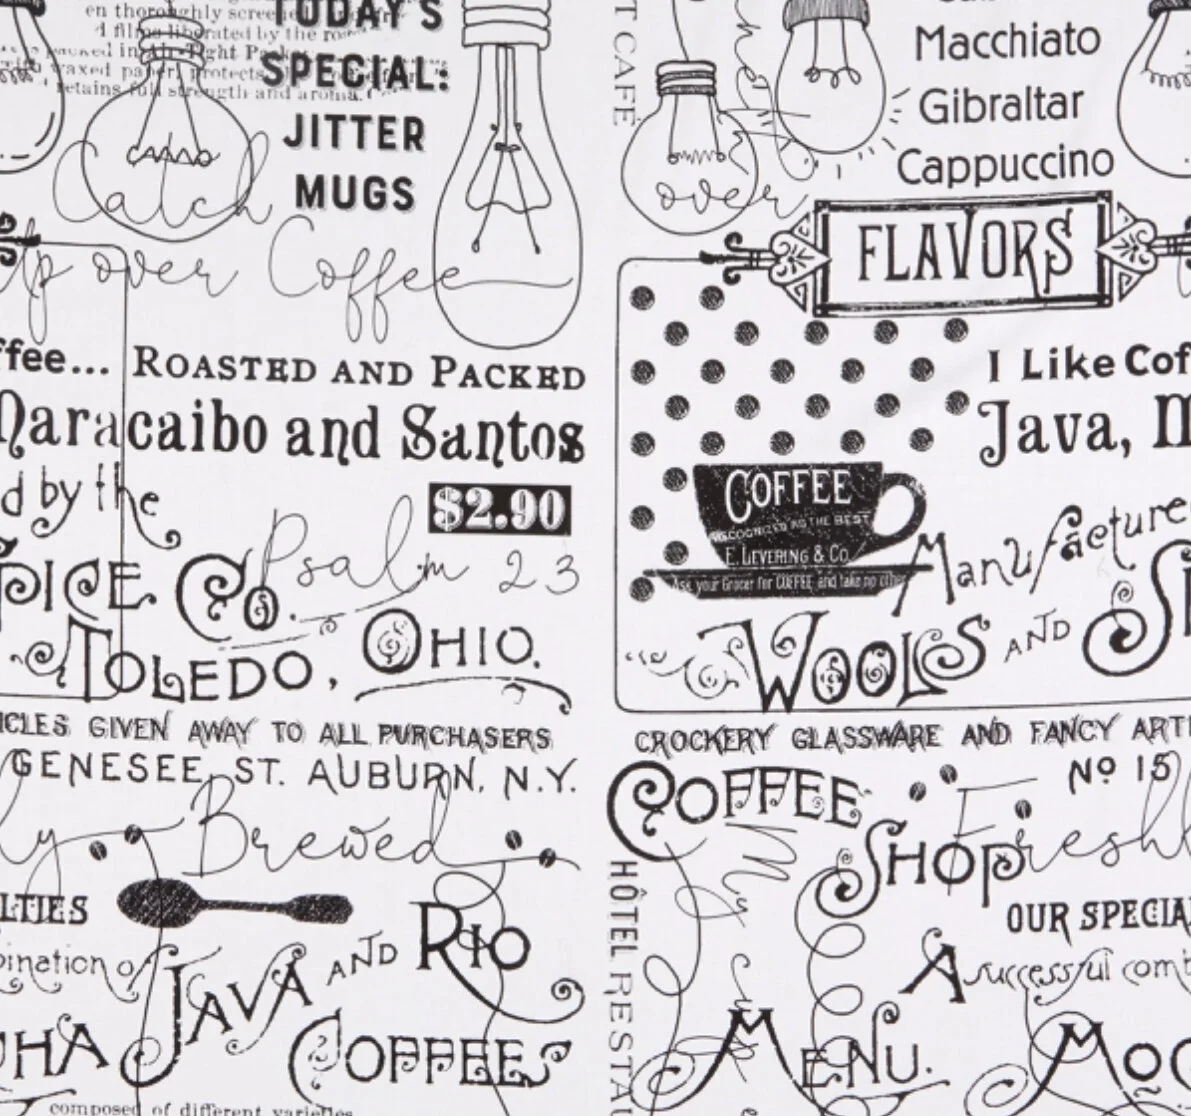 en thoroughly
liberated by the
Air-Tight
waxed paper, protects
retains full strength and aroma.
TODAY'S
SPECIAL:
JITTER
MUGS
Catch
over Coffee
ffee... ROASTED AND PACKED
Maracaibo and Santos
d by the
$2.90
Psalm 23
PICE Co.
TOLEDO, OHIO.
ICLES GIVEN AWAY TO ALL PURCHASERS
GENESEE, ST. AUBURN, N.Y.
ly Brewed
LTIES
bination of
JAVA AND RIO
CHA COFFEES
composed of different varieties
T CAFÉ
Macchiato
Gibraltar
Cappuccino
over
FLAVORS
I Like Cof
Java, M
COFFEE
RECOGNIZED AS THE BEST
E. LEVERING & Co.
Ask your Grocer for COFFEE and take no other
Manufacture
WOOLS AND S
CROCKERY GLASSWARE AND FANCY ARTI
COFFEE
SHOP
No 15
Freshl
HÔTEL RESTAU
OUR SPECIA
A successful comb
MENU.
MOC